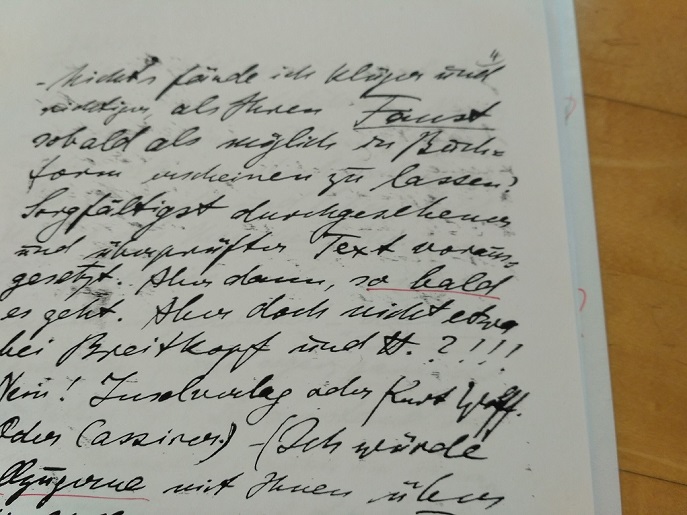 - Nichts fände ich klüger und
richtiger als Ihren Faust
sobald als möglich in Buch=
form erscheinen zu lassen,
Sorgfältigst durchgesehener
und überprüfter Text voraus-
gesetzt. Aber dann, so bald
es geht. Aber doch nicht etwa
bei Breitkopf und H. ? ! ! !
Nein! Inselverlag oder Kurt Wolff.
Oder Cassirer.) - (Ich würde
allzugerne mit Ihnen über